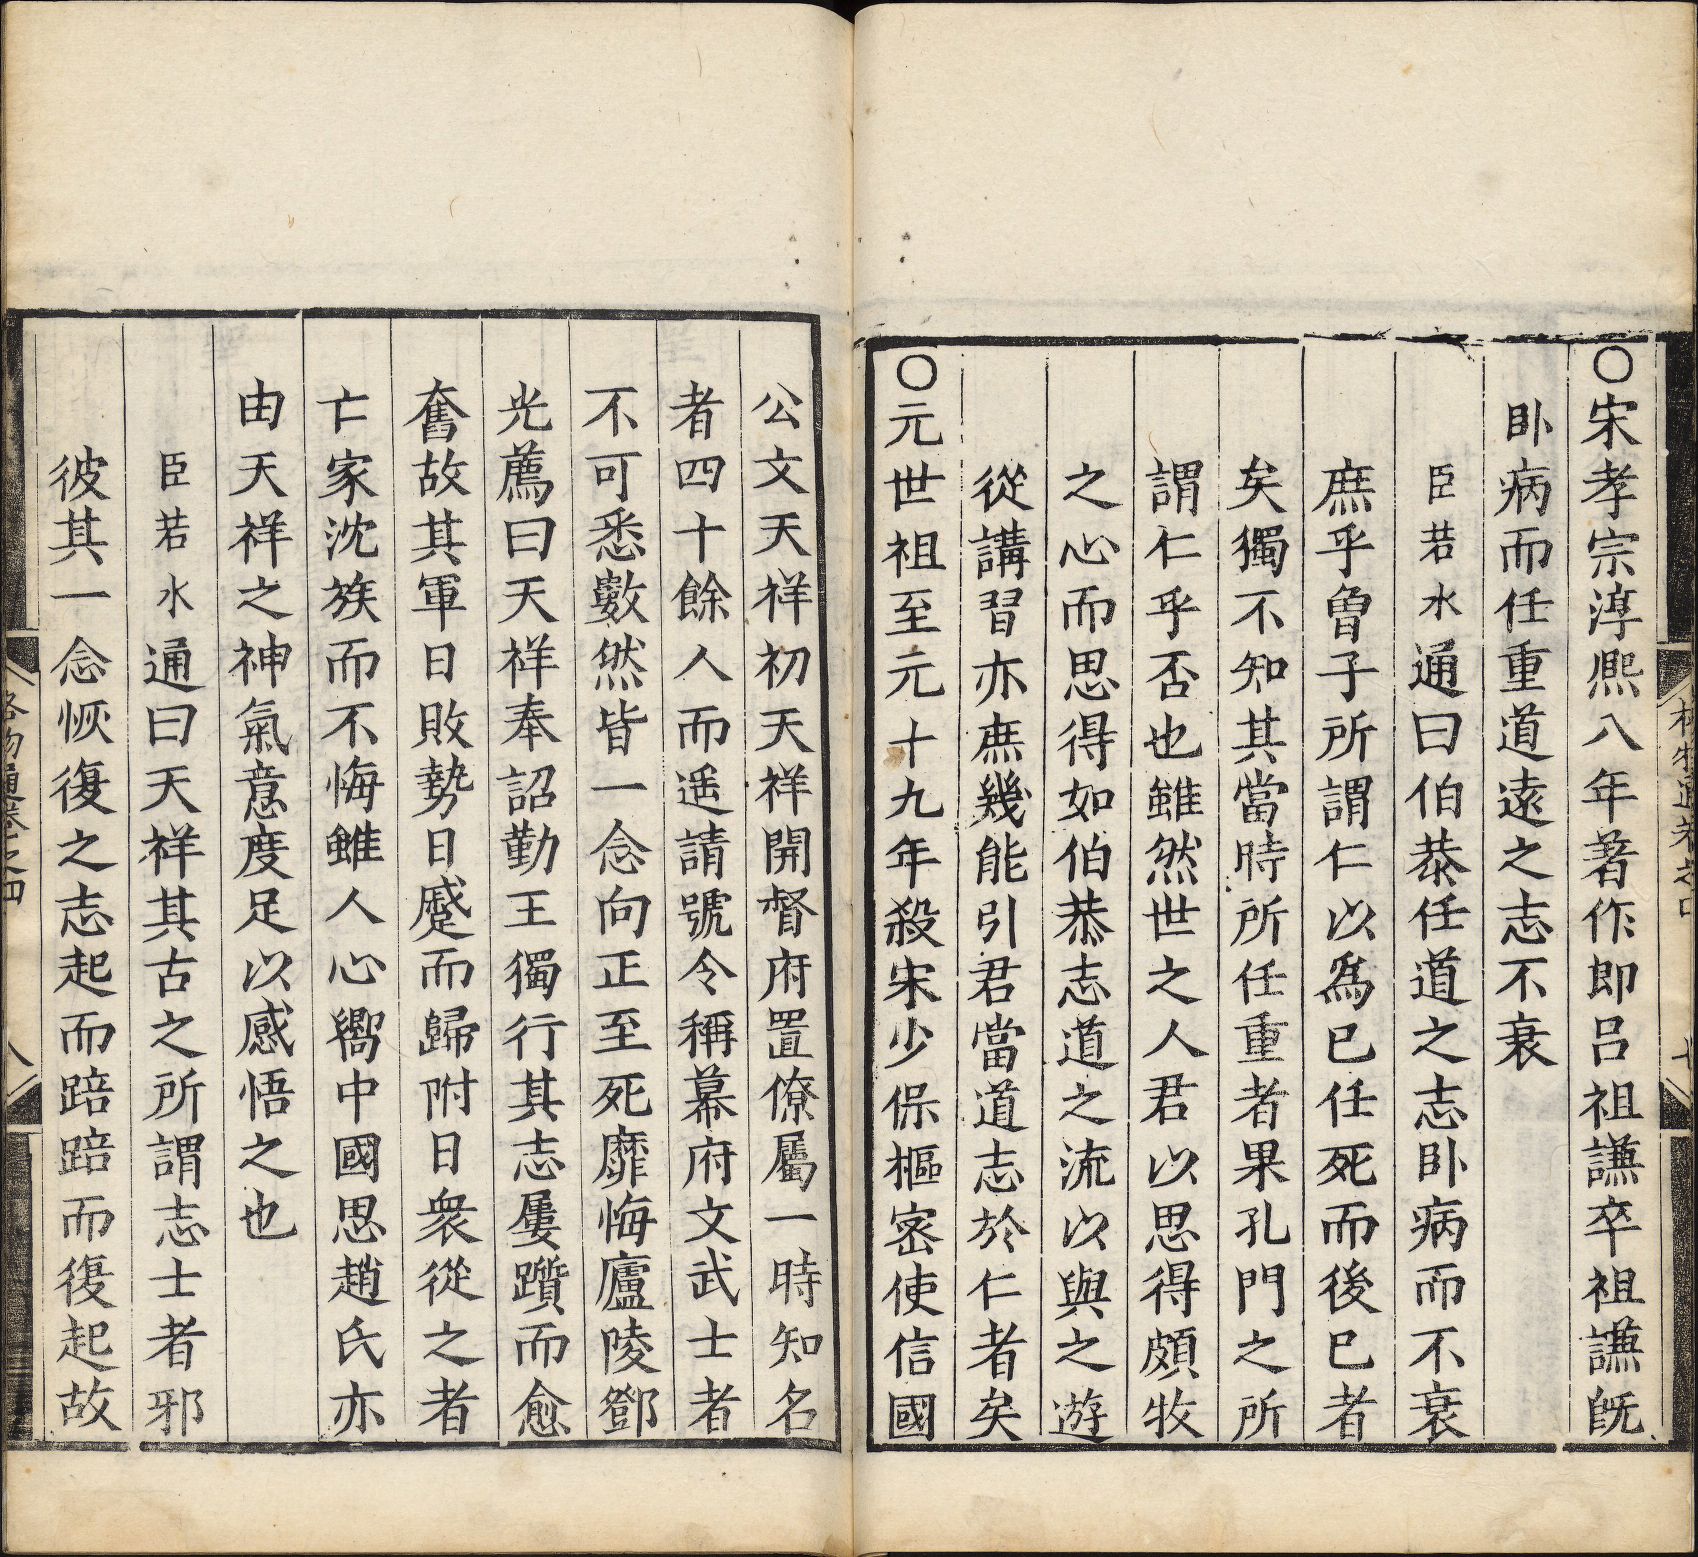 〇宋孝宗淳熈八年著作郎吕祖謙卒祖謙旣
卧病而任重道遠之志不衰
臣若水通曰伯恭任道之志卧病而不衰
庶乎曾子所謂仁以爲已任死而後已者
矣獨不知其當時所任重者果孔門之所
謂仁乎否也雖然世之人君以思得頗牧
之心而思得如伯恭志道之流以與之遊
從講習亦庶幾能引君當道志於仁者矣
〇元世祖至元十九年殺宋少保樞密使信國
公文天祥初天祥開督府置僚屬一時知名
者四十餘人而遥請號令稱幕府文武士者
不可悉數然皆一念向正至死靡悔廬陵鄧
光薦曰天祥奉詔勤王獨行其志屢躓而愈
奮故其軍日敗勢日蹙而歸附日衆從之者
亡家沈族而不悔雖人心嚮中國思趙氏亦
由天祥之神氣意度足以感悟之也
臣若水通曰天祥其古之所謂志士者邪
彼其一念恢復之志起而踣踣而復起故
格物通卷之四
八